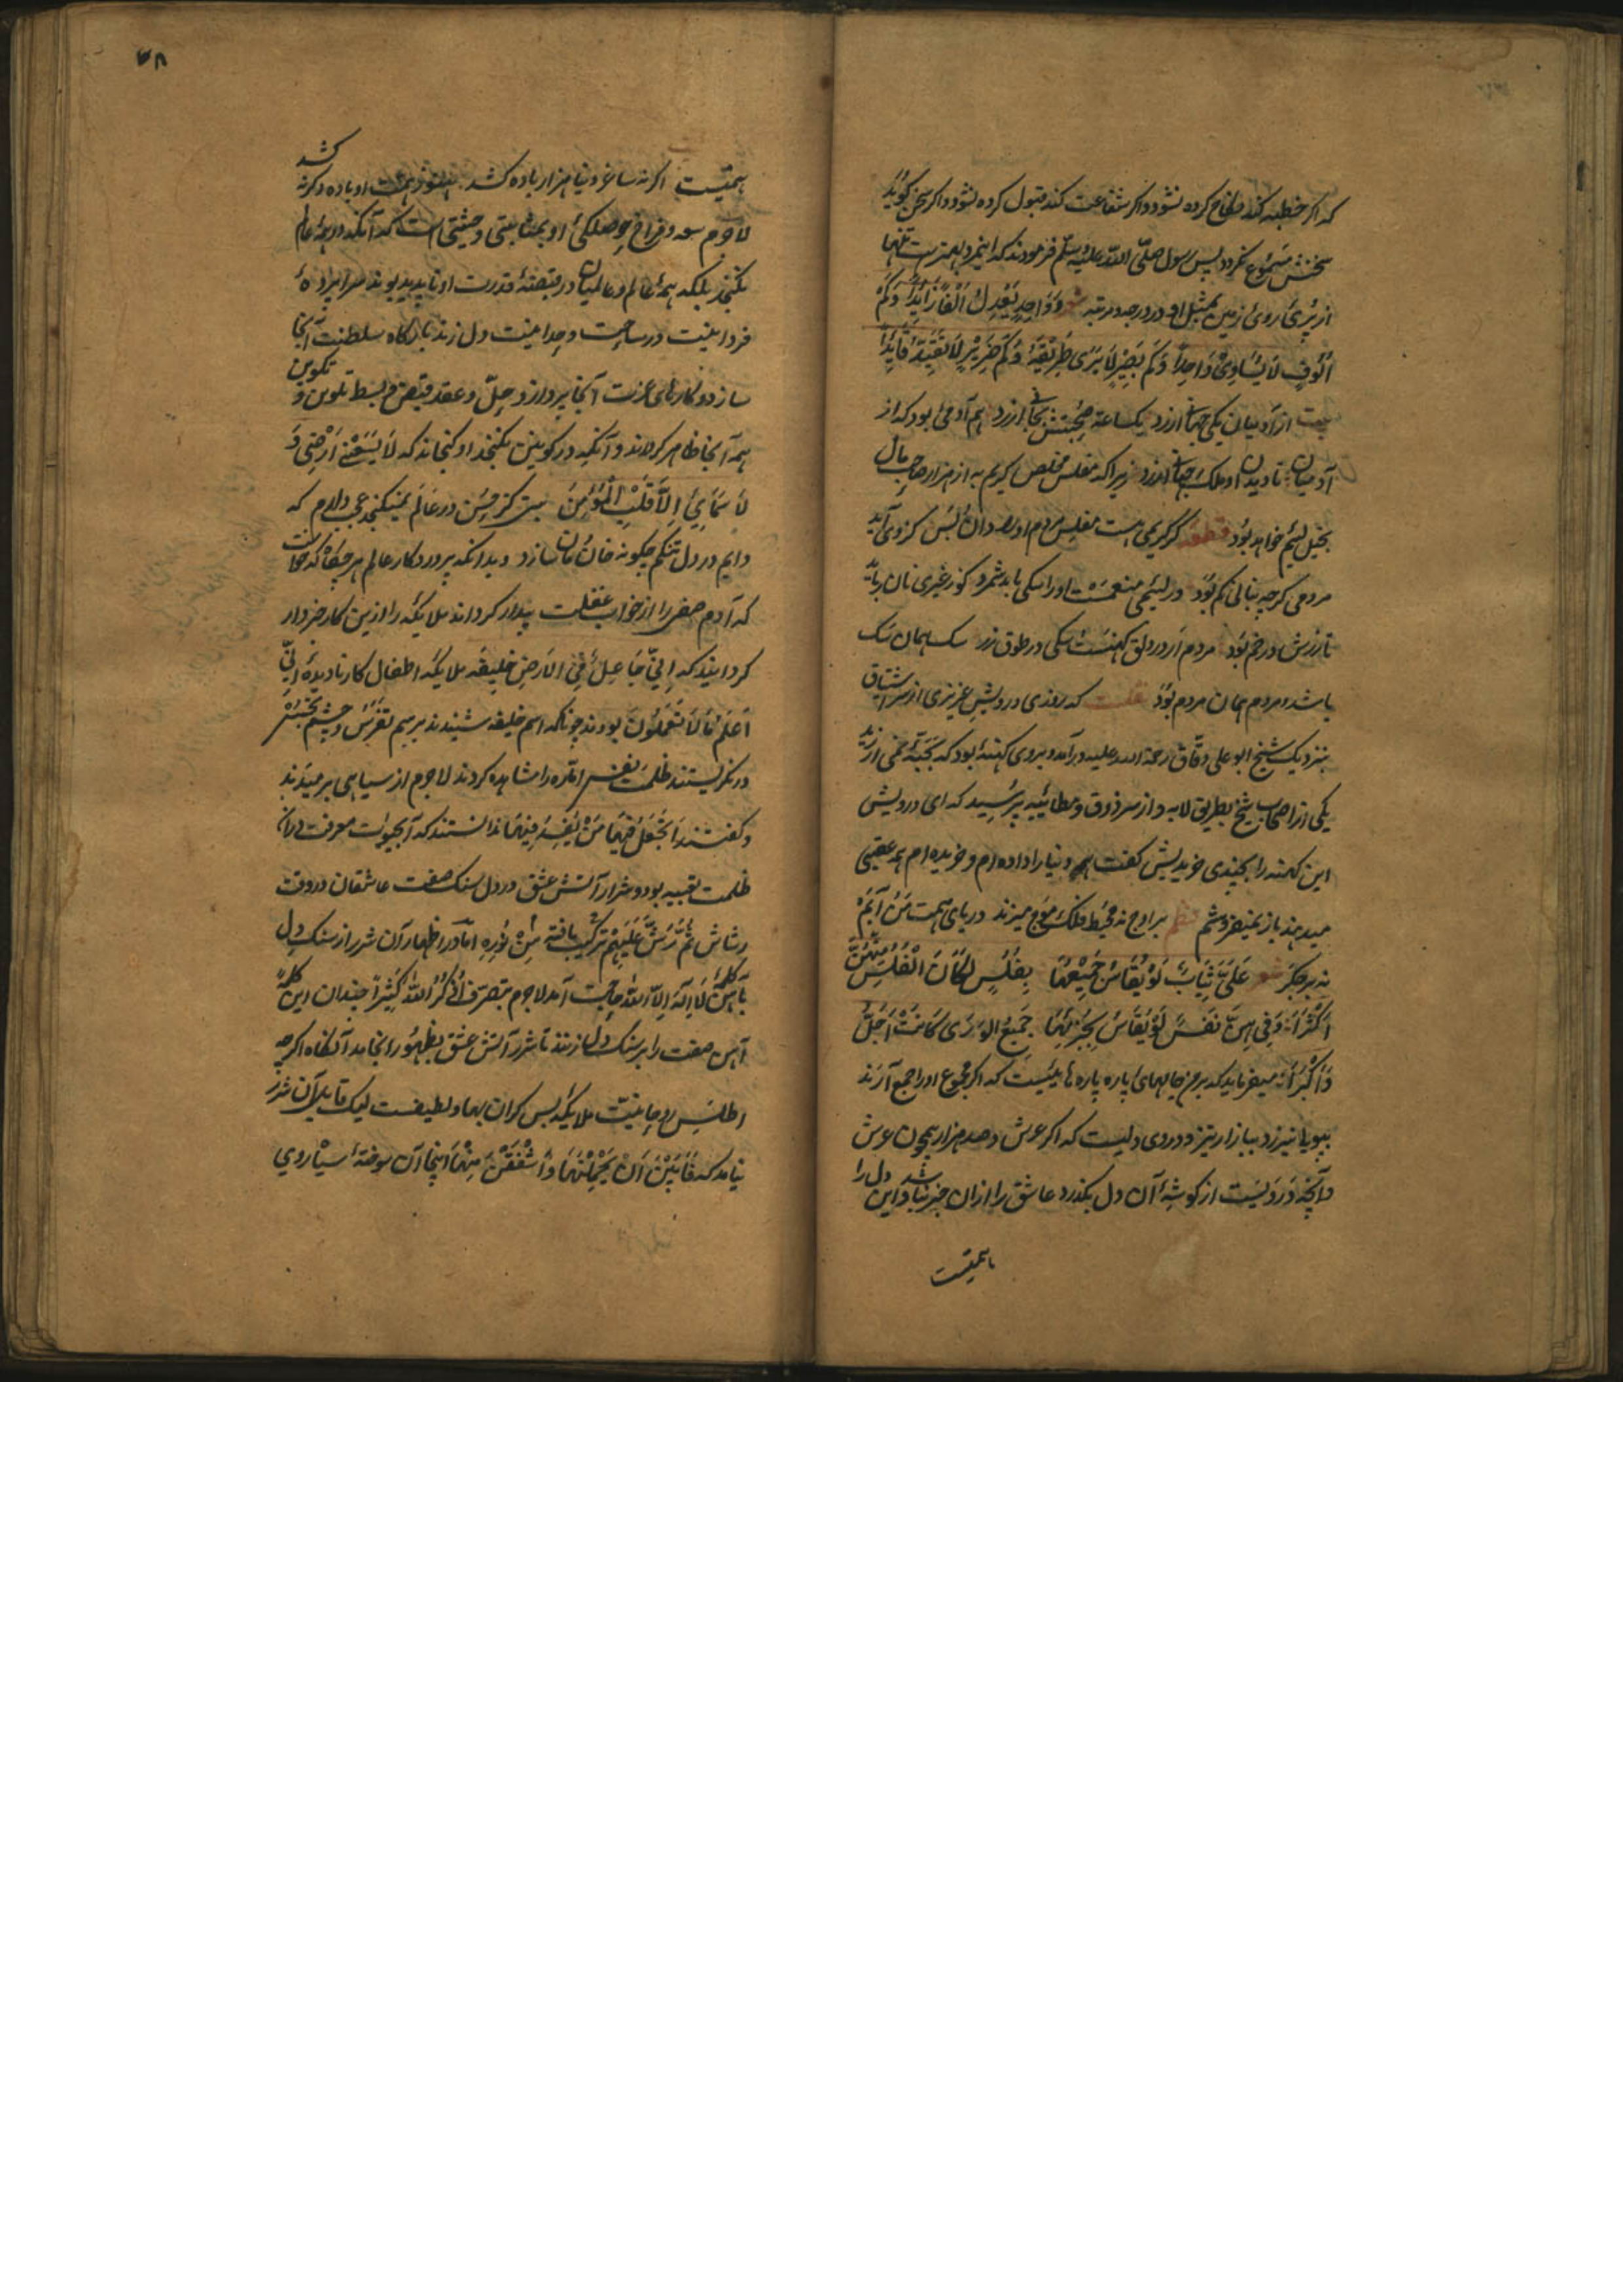 که اگر خطبه کند نکاح کرده نشود و اگر شفاعت کند قبول کرده نشود و اگر سخن گوید
سخنش مسموع نگردد پس رسول صلّی اللّه علیه وسلّم فرمودند که این مرد بهترست تنها
از پُری روی زمین بمثل او در درجه و مرتبه شعر وَوَاحِدٍ یَعْدِلُ اَلْفًا زَایِدًا وَکَمْ
اُلُوفٍ لَا یُسَاوِیْ وَاحِدًا وَکَم بَصِیْرٍ لَا یَرَی طَرِیْقَهُ وَکَمْ ضَرِیْرٍ لَا
بیت از آدمیان یکی جهانی ارزد یکساعته صحبتش بجانی ارزد هم آدمی بود که از
آدمیان نادیدن او ملک جهانی ارزد زیرا که مفلس مخلص کریم به از هزار صاحب مال
بخیل لئیم خواهد بود قطعه گر کریمی هست مفلس مردم او را دان و بس کز وی آید
مردمی گرچه بنانی کم بود ور لئیمی منعمست او را سگی باید شمرد کو ز غیری نان رباید
تا زرش درخم بود مردم ار در دلق کهنست و سگی در طوق زر سگ همان سگ
باشد و مردم همان مردم بود نقلست که روزی درویش عزیزی از سر اشتیاق
بنزدیک شیخ ابو علی دقاق رحمة الله علیه درآمد و بروی کهنهٔ بود که بحبّهٔ نمی ارزید
یکی از اصحاب شیخ بطریق لابه و از سر ذوق و مطایبه پرسید که ای درویش
این کهنه را بچندی خریدیش گفت همه دنیا را داده ام و خریده ام همه عقبی
میدهند باز نمیفروشم نظم بر اوج نه محیط فلک موج میزند دریای همت من
نه بر جگر شعر عَلَیَّ ثِیَابٌ لَوْ یُقَاسُ جَمِیْعُهَا بِفَلْسٍ لَکَانَ الْفَلْسُ مِنْهُنَّ
اَکْثَرَا وَفِی هِنَّ نَفْسٌ لَوْ یُقَاسُ بِجُزْئِهَا جَمِیْعُ الوَرَی کَانَتْ اَجَلَّ
وَاَکْبَرَا میفرماید که بر من جامهای پاره پاره هاییست که اگر مجموع او را جمع آرند
به پویا نیرزد ببازار تیز و در وی دلیست که اگر عرش و صد هزار همچون عرش
و آنچه دَرویَست از گوشهٔ آن دل بگذرد عاشق را ازان خبر نباشد و این دل را
با همتیست
۳۸
همتیست اگر نه ساغر دنیا هزار باده کشد هنوز همت او بادهٔ دگر کشد
لاجرم سعه و فراخ حوصلگی او بمثابتی و حیثیتی است که آنکه در همهٔ عالم
نگنجد بلکه همهٔ عالم و عالمیان در قبضهٔ قدرت او ناپدید بوند سراپردهٔ
فردانیت در ساحت وحدانیت دل زند بارگاه سلطنت آنجا
سازد و کارهای عزت آنجا پردازد و حلّ و عقد و قبض و بسط تلوین و تکوین
همه آنجا ظاهر گرداند و آنکه در کونین نگنجد او گنجاند که لَا یَسَعُنِی اَرْضِی وَ
لَا سَمَایِئ اِلَّا قَلْبِ الْمُؤْمِنَ بیت کز حسن در عالم نمیگنجد عجب دارم که
دایم در دل تنگم چگونه خان و مان سازد و بدانکه پروردگار عالم هرچگاه که خواست
که آدم صفی را از خواب غفلت بیدار گرداند ملایکه را ازین کار خبردار
گردانید که اِنِّی جَاعِلٌ فِی الْاَرْضِ خَلِیفَه ملایکه اطفال کار نادیدهٔ اِنِّی
اَعْلَمُ مَا لَا تَعْمَلُونَ بودند چونکه اسم خلیفه شنیدند برسم تفرّس و چشم تجسّس
درنگریستند ظلمت نفس امّاره را مشاهده کردند لاجرم از سیاهی برمیدند
و گفتند اَتَجْعَلُ فِیْهَا مَنْ یُفْسِدُ فِیْهَا ندانستند که آبحیوان معرفت در آن
ظلمت تعبیه بود و شرار آتش عشق در دل سنگ صفت عاشقان در وقت
رشاش ثُمَّ رَشَّ عَلَیْهِمْ ترکیب یافته مِنْ نُوْرِهِ امّا در اظهار آن شرر از سنگ دل
بآهن کلمهٔ لَا اِلَهَ اِلَّا اللّٰه حاجت آمد لاجرم بتصرّف اُذْکُرُ اللّٰه کَثِیْراً چندان این کلمهٔ
آهن صفت را بر سنگ دل زنند تا شرر آتش عشق بظهور انجامد آنگاه اگرچه
اطلس روحانیّت ملایکه بس گران بها و لطیفست لیک قابل آن شرر
نیامد که فَاَبَیْنَ اَنْ یَحْمِلْنَهَا وَاَشْفَقْنَ مِنْهَا اینجا آن سوختهٔ سیاروی